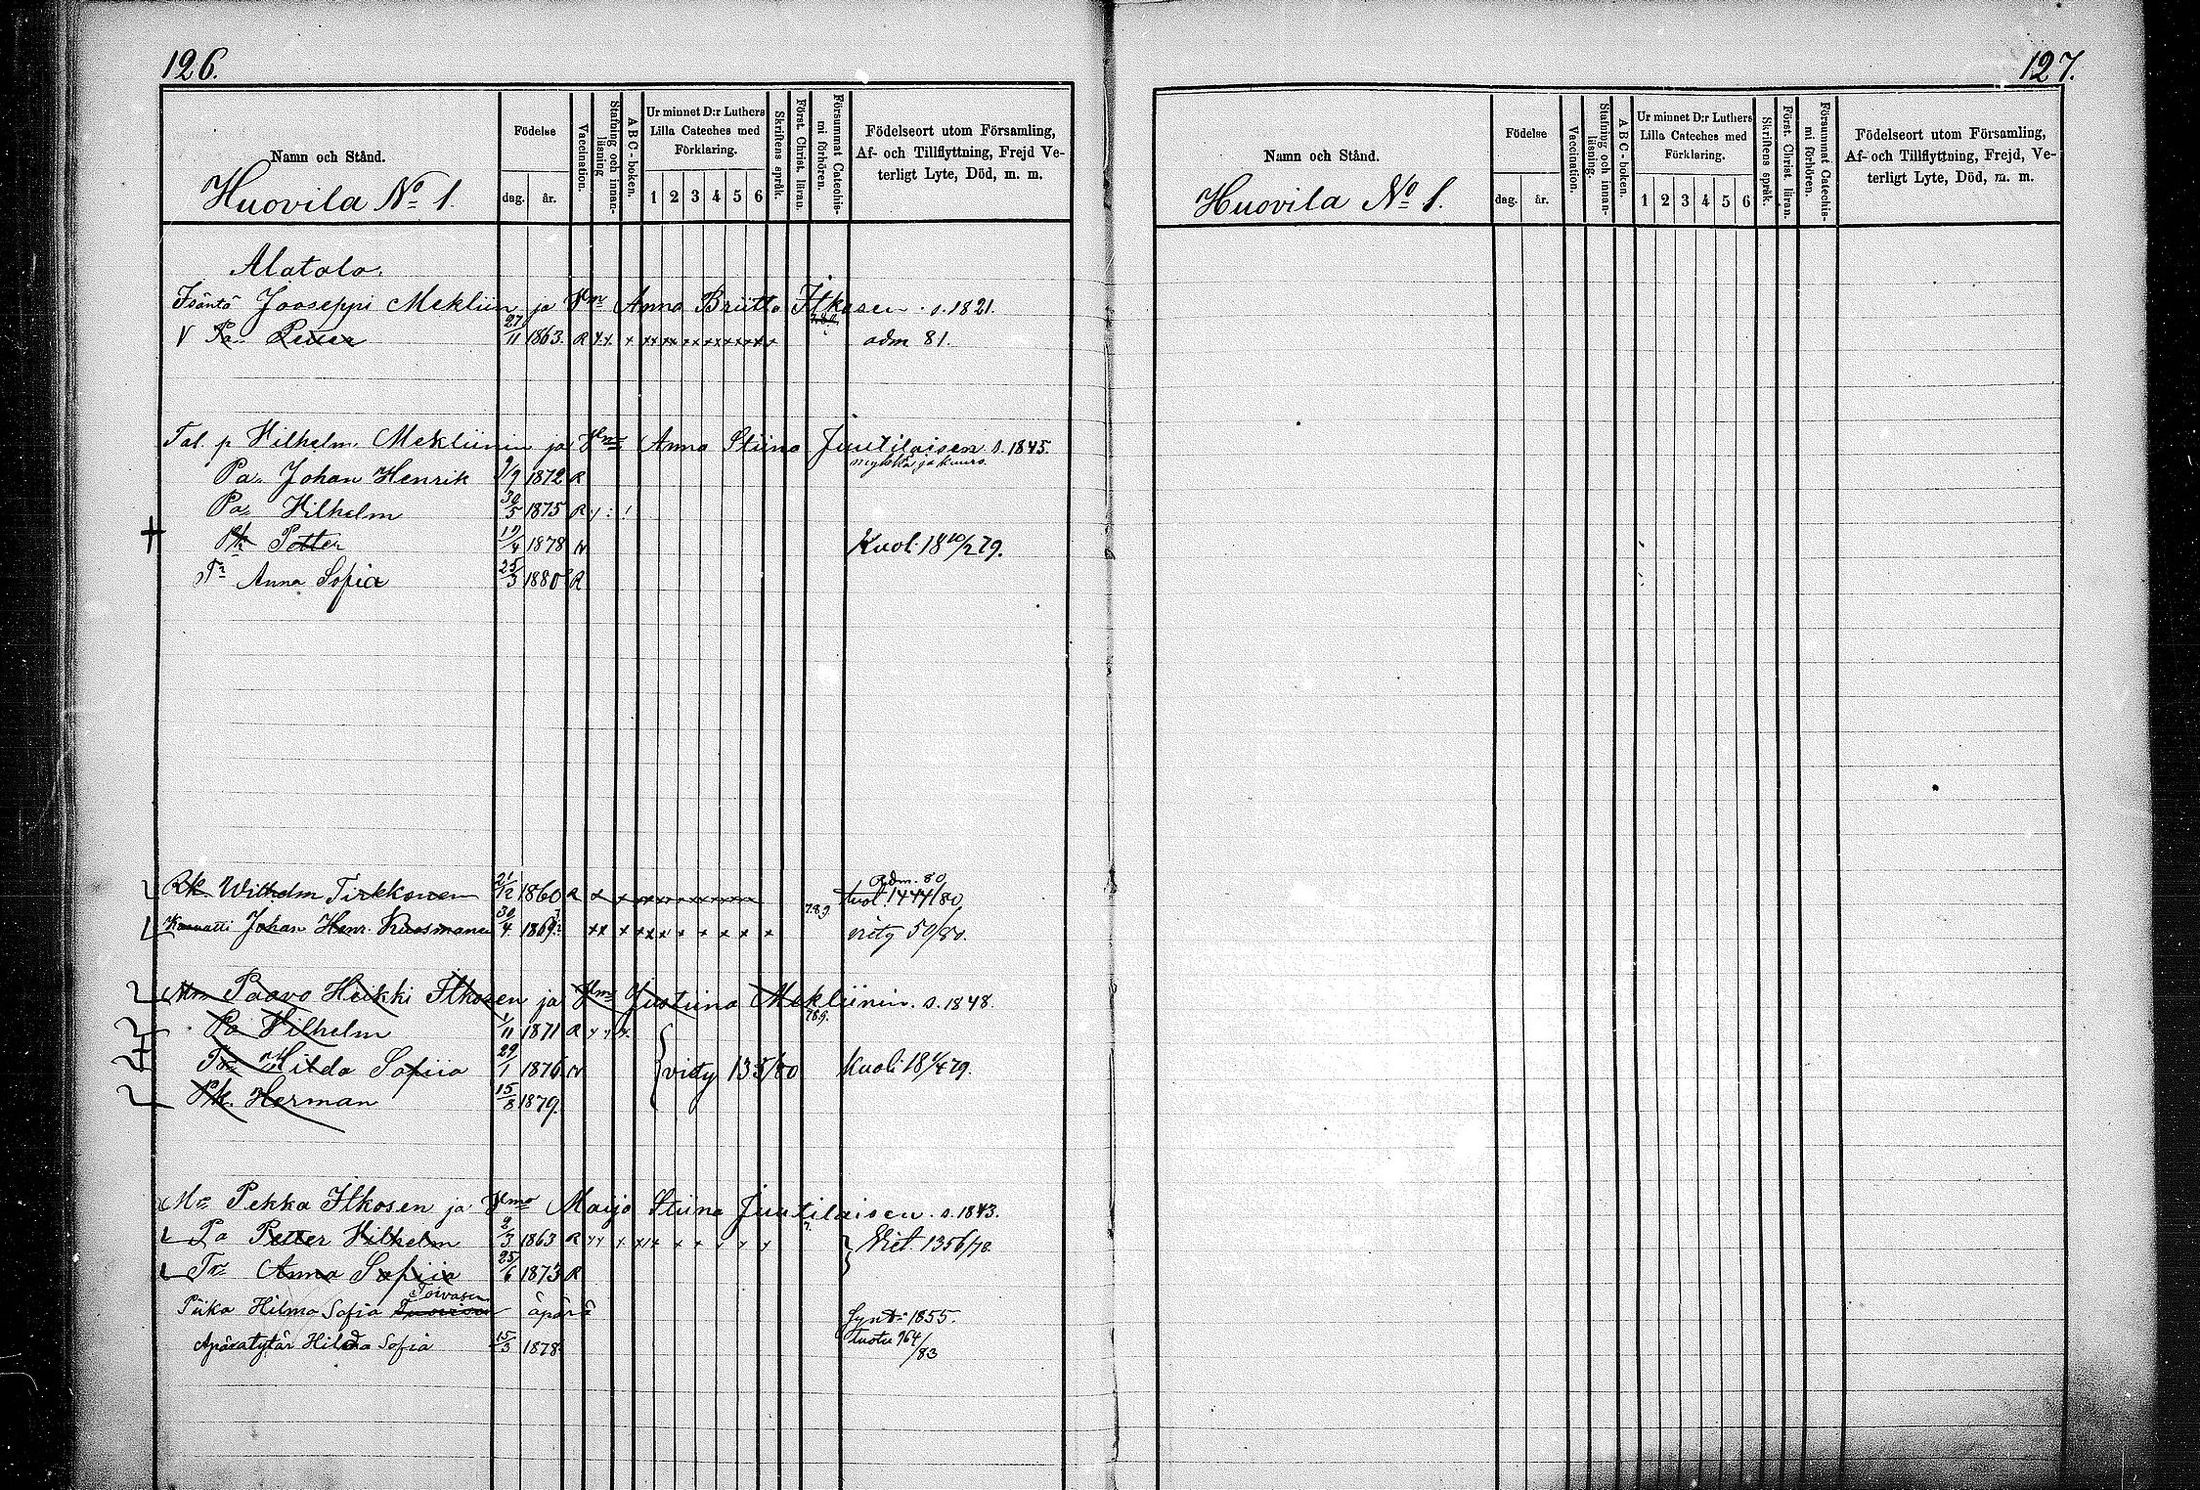 126.
Namn och Stånd.
Huovila No 1.
Födelse
dag. år.
Vaccination.
Stafning och innan-
läsning
A B C-boken.
Ur minnet D:r Luthers
Lilla Cateches med
Förklaring.
1 2 3 4 5 6
Skriftens språk.
Först. Christ. läran.
Försummat Catechis-
mi förhören.
Födelseort utom Församling,
Af- och Tillflyttning, Frejd Ve-
terligt Lyte, Död, m. m.
Alatalo.
Isäntä Jooseppi Mekliin ja Vmo Anna Briitta Itkosen s. 1821.
V Pa Petter 27/11 1863. R x x x x x x x x x x x x adm 81.
Tal. p Vilhelm Mekliinin ja Vmo Anna Stiina Juutilaisen s. 1845.
Pa Johan Henrik 9/9 1872 R
Pa Vilhelm 30/5 1875 R
+ Pk Petter 17/4 1878 N Kuol. 18 10/2 79.
Tr Anna Sofia 25/3 1880 R
Adm. 80
Rk. Wilhelm Tirkkonen 21/12 1860 R x x x x x x x x x tuot. 1444/80.
Johan Henr. Kuosmanen 30/4 1869 x x x x x x x x x x 789
Paavo Heikki Itkosen ja Vmo Justiina Mekliinin. s. 1848.
789.
Pa Vilhelm 1/11 1871 R x x x
Tr Hilda Sofiia 29/1 1876 N Kuoli 18
Pk. Herman 15/8 1879.
Mr Pekka Itkosen ja Vmo Maija Stiina Juutilaisen s. 1843.
Pa Petter Vilhelm 2/3 1863 R x x x x x x x x x x 1356/78
Tr Anna Sofiia 25/6 1873 R
Toivasen
Piika Hilma Sofia äpärä Synt. 1855.
Äpärätytär Hilda Sofia 15/3 1878 tuotu 964/83
127.
Namn och Stånd.
Huovila No 1.
Födelse
dag. år.
Vaccination.
Stafning och innan-
läsning.
A B C-boken.
Ur minnet D:r Luthers
Lilla Cateches med
Förklaring.
1 2 3 4 5 6
Skriftens språk.
Först. Christ. läran.
Försummat Catechis-
mi förhören.
Födelseort utom Församling,
Af- och Tillflyttning, Frejd, Ve-
terligt Lyte, Död, m. m.